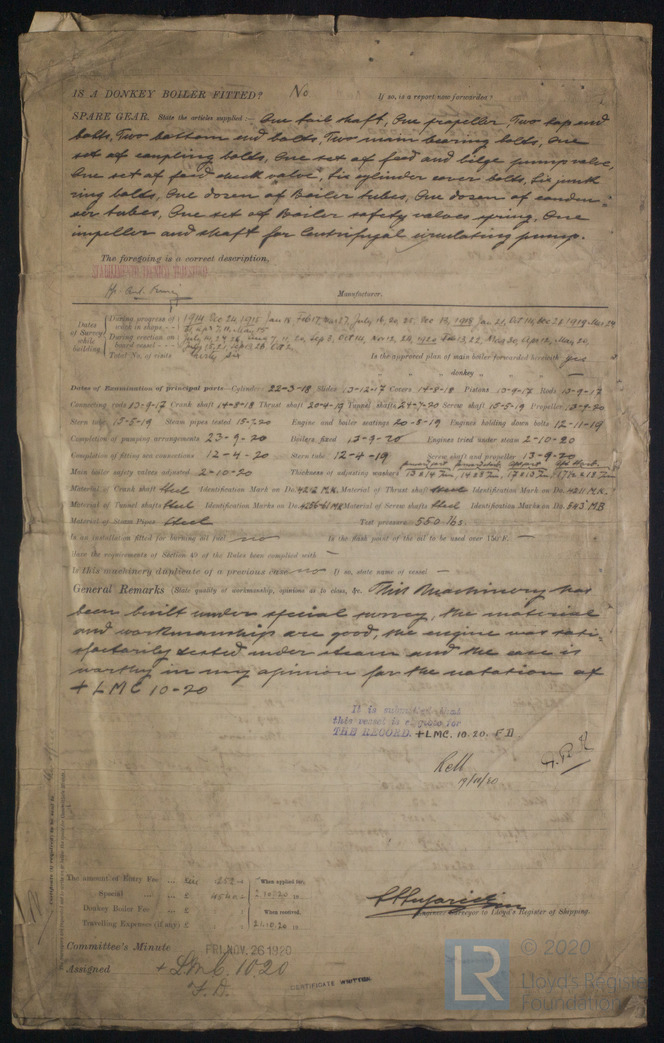 IS A DONKEY BOILER FITTED? No If so, is a report now forwarded?
SPARE GEAR. State the articles supplied:— One tail shaft, One propeller Two top end
bolts, Two bottom end bolts, Two main bearing bolts, One
set of coupling bolts, One set of feed and bilge pump valve,
One set of feed check valve, Six cylinder cover bolts, Six junk
ring bolts, One dozen of Boiler tubes, One dozen of conden-
ser tubes, One set of Boiler safety valves spring, One
impeller and shaft for Centrifugal circulating pump.
The foregoing is a correct description,
Manufacturer.
Dates of Survey while building
During progress of work in shops - -
During erection on board vessel - - -
Total No. of visits Thirty Six
Is the approved plan of main boiler forwarded herewith yes
" " " donkey " " " —
Dates of Examination of principal parts—Cylinders 22-3-18 Slides 13-12-17 Covers 14-8-18 Pistons 13-9-17 Rods 13-9-17
Connecting rods 13-9-17 Crank shaft 14-8-18 Thrust shaft 20-4-19 Tunnel shafts 24-7-20 Screw shaft 15-5-19 Propeller 13-9-20
Stern tube 15-5-19 Steam pipes tested 15-7-20 Engine and boiler seatings 20-8-19 Engines holding down bolts 12-11-19
Completion of pumping arrangements 23-9-20 Boilers fixed 13-9-20 Engines tried under steam 2-10-20
Completion of fitting sea connections 12-4-20 Stern tube 12-4-19 Screw shaft and propeller 13-9-20
Main boiler safety valves adjusted 2-10-20 Thickness of adjusting washers
Material of Crank shaft Steel Identification Mark on Do. 4212 MK. Material of Thrust shaft Steel Identification Mark on Do. 4211 MK.
Material of Tunnel shafts Steel Identification Marks on Do. Material of Screw shafts Steel Identification Marks on Do. 543 MB
Material of Steam Pipes Steel Test pressure 550 lbs.
Is an installation fitted for burning oil fuel no Is the flash point of the oil to be used over 150°F. —
Have the requirements of Section 49 of the Rules been complied with —
Is this machinery duplicate of a previous case no If so, state name of vessel —
General Remarks (State quality of workmanship, opinions as to class, &c. This Machinery has
been built under special survey, the material
and workmanship are good, the engine was sati-
sfactorily tested under steam and the case is
worthy in my opinion for the notation of
+ LMC 10-20
It is submitted that
this vessel is eligible for
THE RECORD. + LMC. 10.20. F.D.
19/11/20
The amount of Entry Fee ...
Special ... ... £
Donkey Boiler Fee ... £
Travelling Expenses (if any) £
When applied for,
When received,
Engineer Surveyor to Lloyd's Register of Shipping.
Committee's Minute FRI. NOV. 26 1920
Assigned + LMC. 10.20
F.D.
CERTIFICATE WRITTEN
LR
© 2020
Lloyd's Register
Foundation